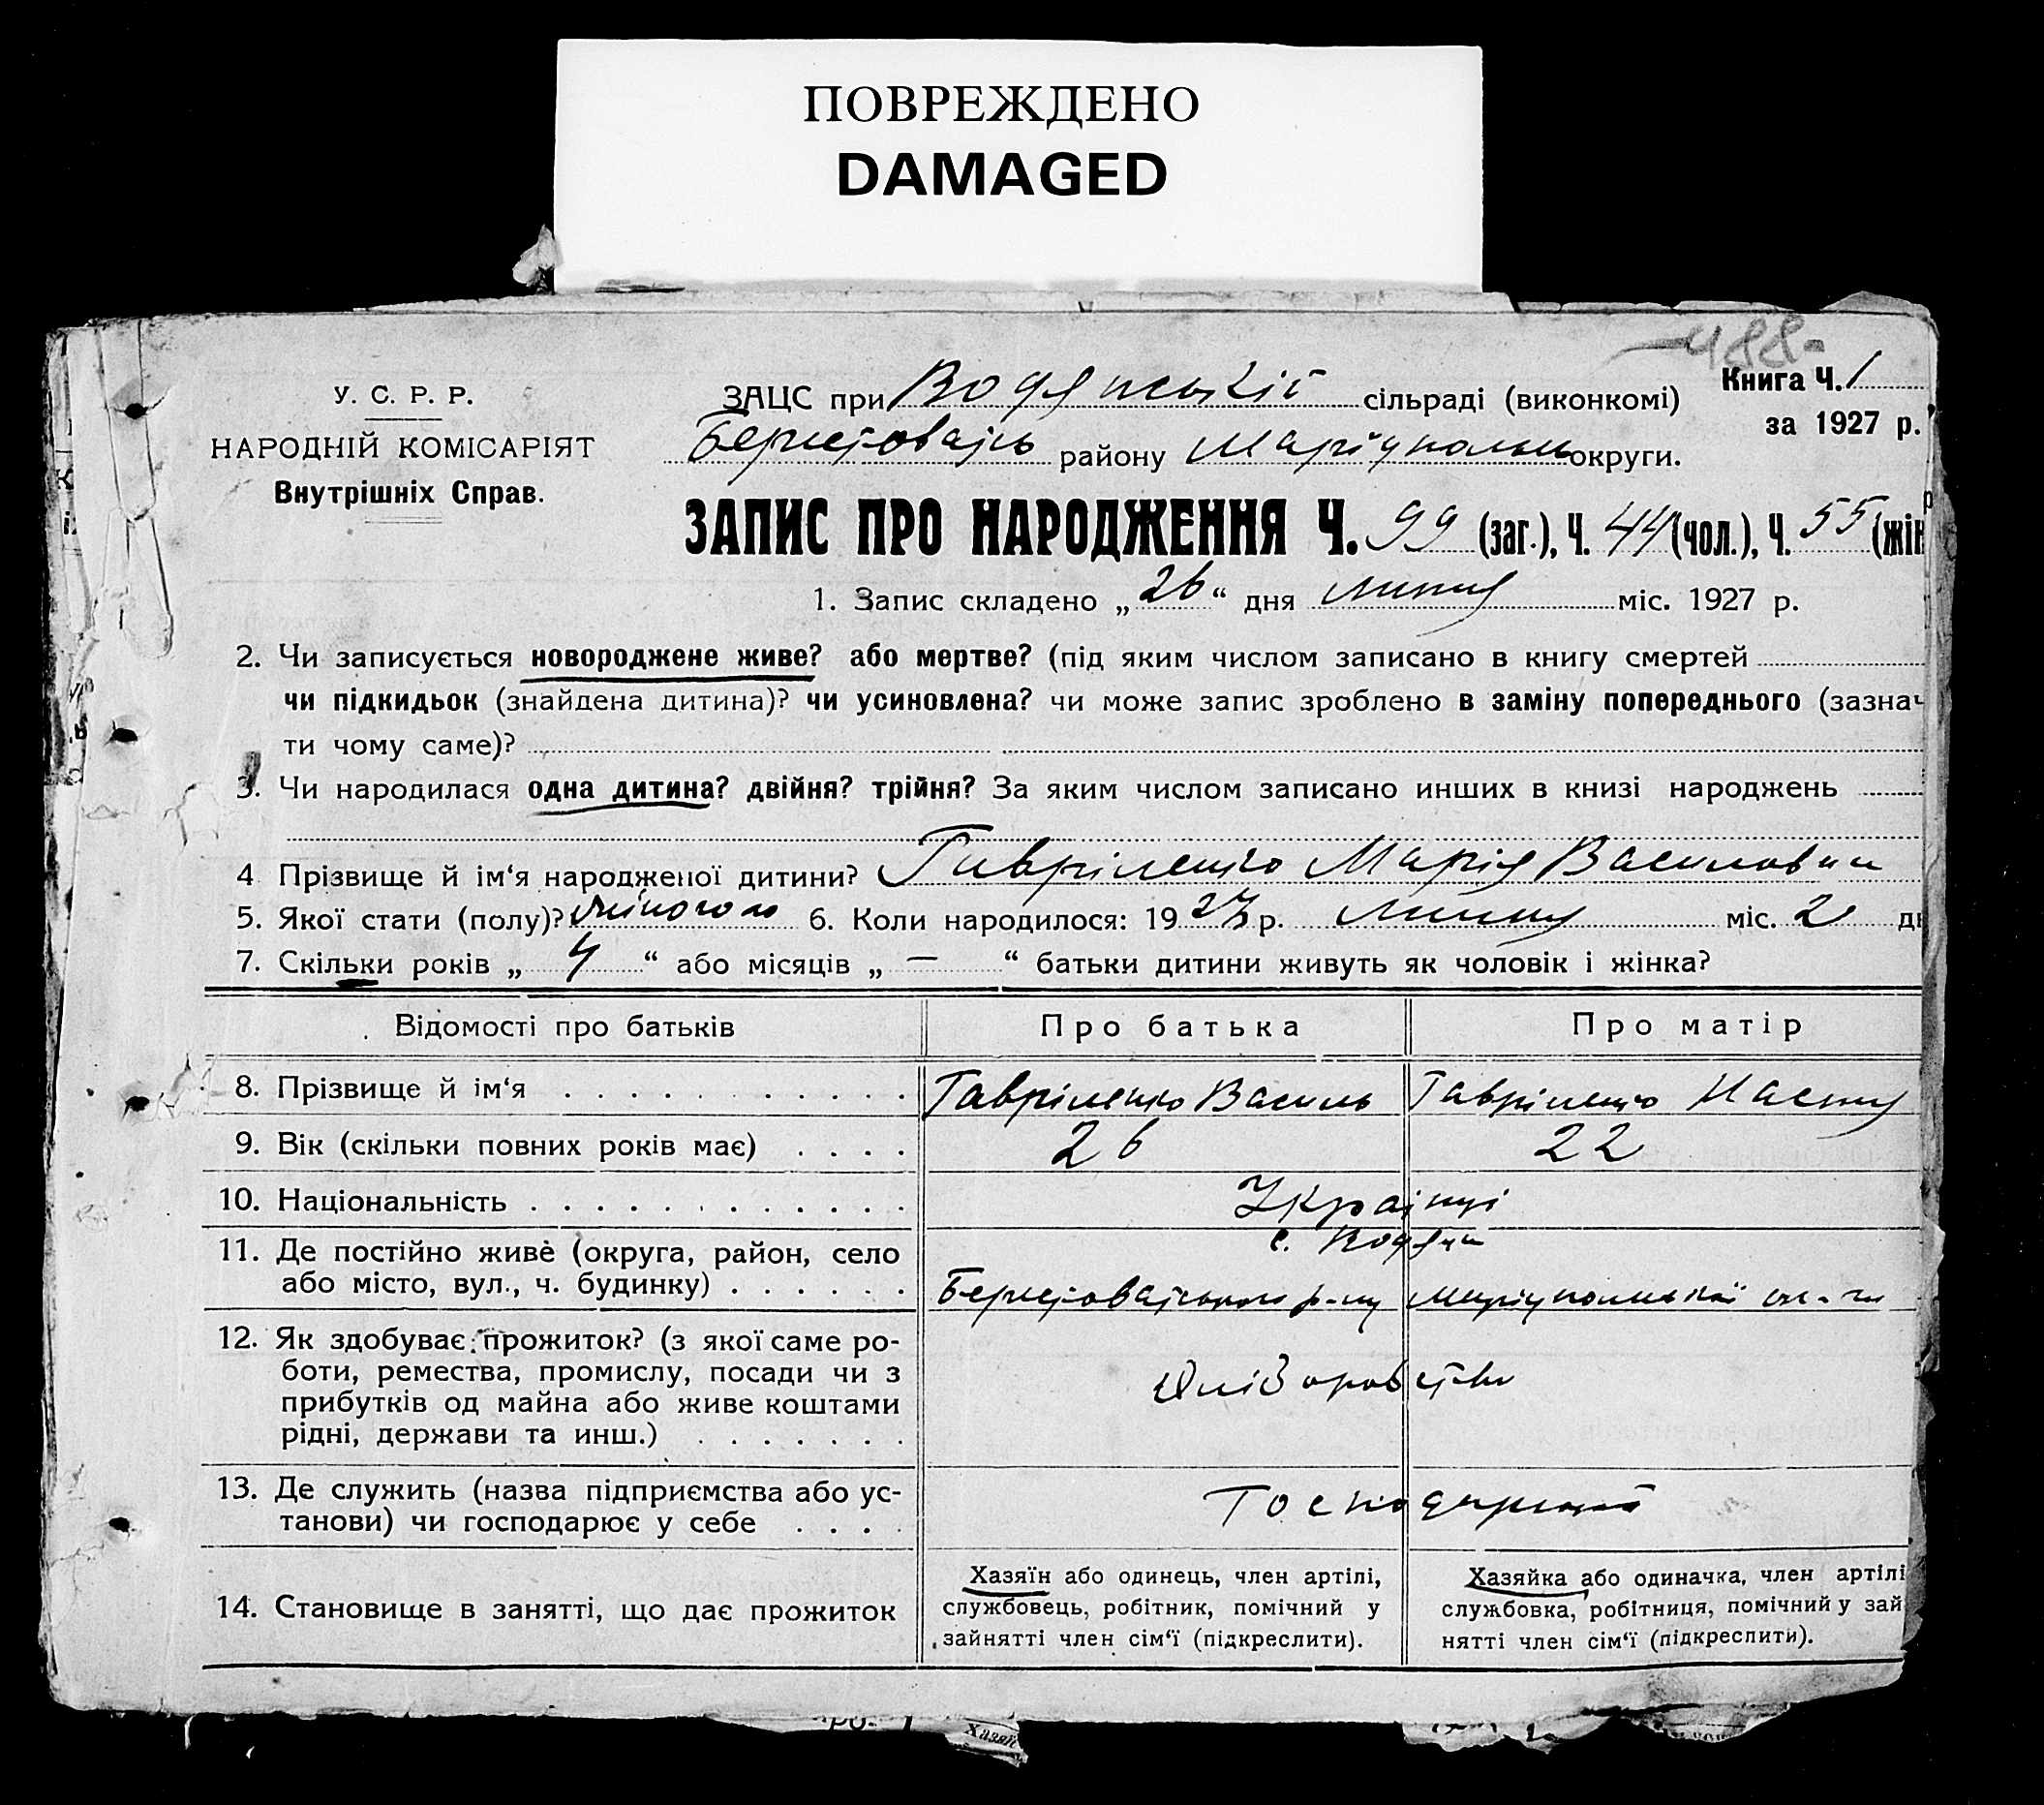 ПОВРЕЖДЕНО
DAMAGED
488-
У. С. Р. Р.
НАРОДНІЙ КОМІСАРІЯТ
Внутрішніх Справ.
Книга Ч. 1
за 1927 р.
ЗАЦС при Водянській сільраді (виконкомі)
району Маріупольськ округи.
ЗАПИС ПРО НАРОДЖЕННЯ Ч. 99 (заг.), Ч. 44 (чол.), Ч. 55 (жін
1. Запис складено „ 26 “ дня липня міс. 1927 р.
2. Чи записується новороджене живе? або мертве? (під яким числом записано в книгу смертей
чи підкидьок (знайдена дитина)? чи усиновлена? чи може запис зроблено в заміну попереднього (зазнач
ти чому саме)?
3. Чи народилася одна дитина? двійня? трійня? За яким числом записано инших в книзі народжень
4 Прізвище й ім‘я народженої дитини? Гавріленко Марія Василовна
5. Якої стати (полу)? жіночого 6. Коли народилося: 1927 р. липня міс. 2 дн
7. Скільки років „ 4 “ або місяців „ — “ батьки дитини живуть як чоловік і жінка?
Відомості про батьків Про батька Про матір
8. Прізвище й ім‘я Гавріленко Василь Гавріленко Настя
9. Вік (скільки повних років має) 26 22
10. Національність Україนці
11. Де постійно живе (округа, район, село с. Водяна
або місто, вул., ч. будинку) р-ну Маріупольської ок-ги
12. Як здобуває прожиток? (з якої саме ро-
боти, ремества, промислу, посади чи з
прибутків од майна або живе коштами Хліборобство
рідні, держави та инш.)
13. Де служить (назва підприємства або ус-
танови) чи господарює у себе
14. Становище в занятті, що дає прожиток
Хазяїн або одинець, член артілі,
службовець, робітник, помічний у
зайнятті член сім‘ї (підкреслити).
Хазяйка або одиначка, член артілі
службовка, робітниця, помічний у зай
нятті член сім‘ї (підкреслити).
Хазяй